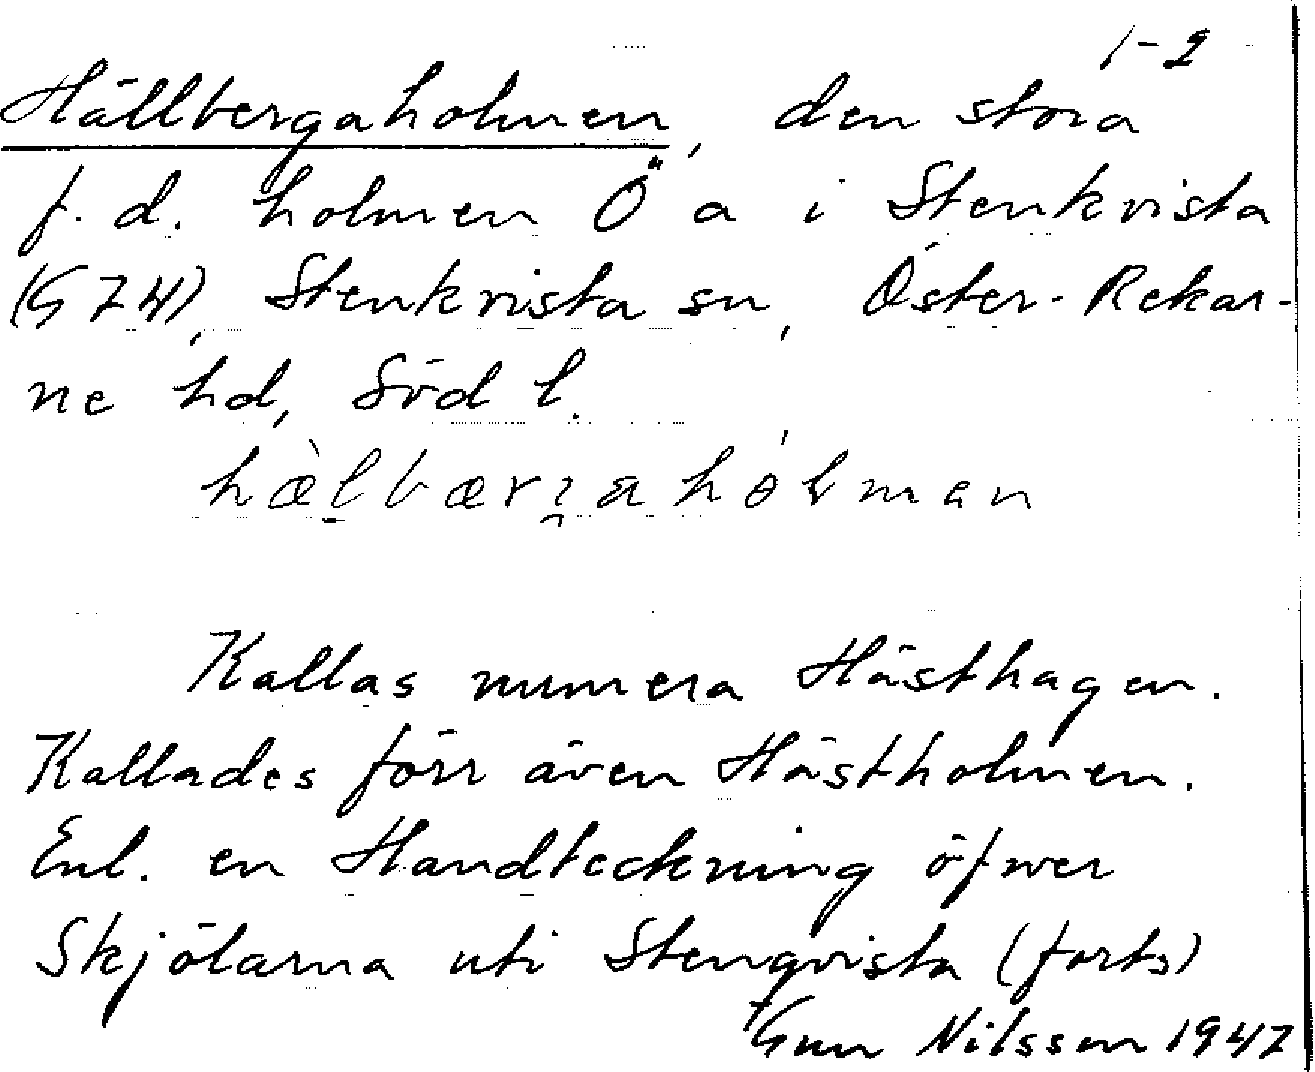 1-2
Hällbergaholmen, den stora
f.d. holmen Ö a i Stenkvista
(G 74), Stenkvista sn, Öster-Rekar-
ne hd, Söd l.
Kallas numera Hästhagen.
Kallades förr även Hästholmen.
Enl. en Handteckning öfwer
Skjölarna uti Stenqvista (forts)
Gun Nilsson 1947